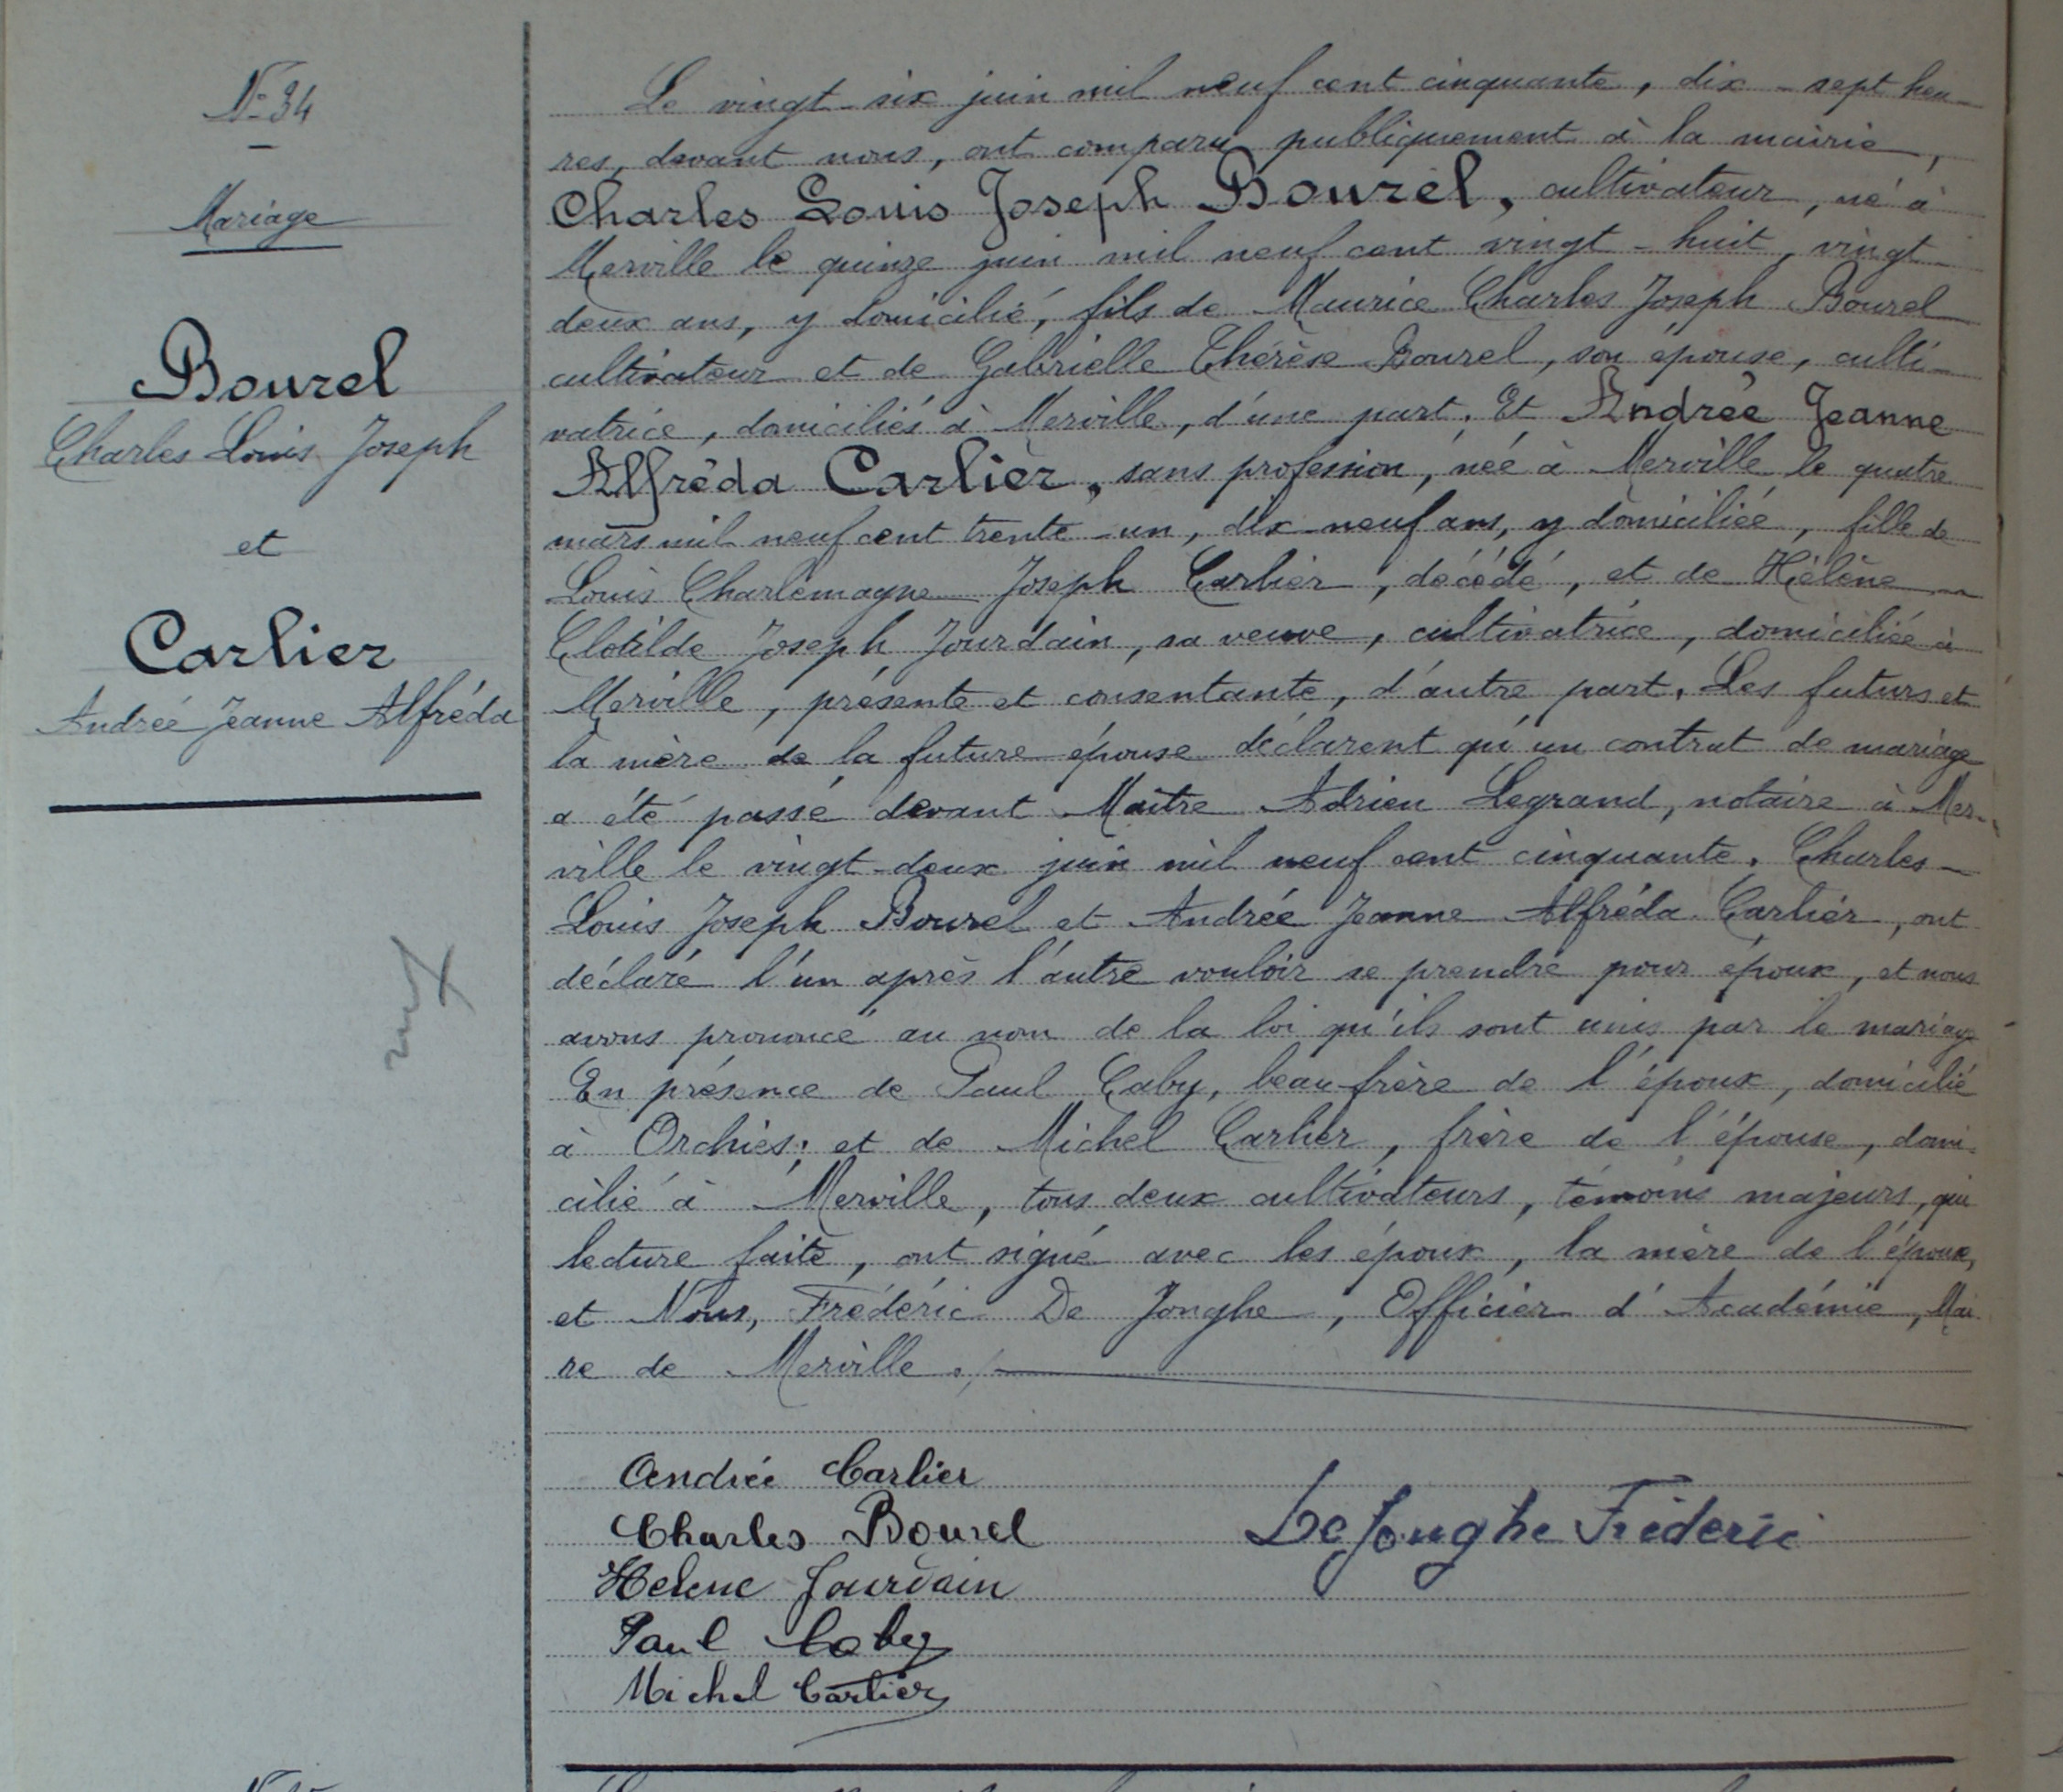 N° 34
Mariage
Bourel
Charles Louis Joseph
et
Carlier
Andrée Jeanne Alfréda
Le vingt-six juin mil neuf cent cinquante, dix-sept heu-
res, devant nous, ont comparu publiquement à la mairie,
Charles Louis Joseph Bourel, cultivateur, né à
Merville le quinze juin mil neuf cent vingt-huit, vingt-
deux ans, y domicilié, fils de Maurice Charles Joseph Bourel
cultivateur et de Gabrielle Thérèse Bourel, son épouse, culti-
vatrice, domiciliés à Merville, d'une part. Et Andrée Jeanne
Alfréda Carlier, sans profession, née à Merville le quatre
mars mil neuf cent trente-un, dix-neuf ans, y domiciliée, fille de
Louis Charlemagne Joseph Carlier, décédé, et de Hélène
Clotilde Joseph Jourdain, sa veuve, cultivatrice, domiciliée à
Merville, présente et consentante, d'autre part. Les futurs et
la mère de la future épouse déclarent qu'un contrat de mariage
a été passé devant Maître Adrien Legrand, notaire à Mer-
ville le vingt-deux juin mil neuf cent cinquante. Charles-
Louis Joseph Bourel et Andrée Jeanne Alfréda Carlier, ont
déclaré l'un après l'autre vouloir se prendre pour époux, et nous
avons prononcé au nom de la loi qu'ils sont unis par le mariage
En présence de Paul Caby, beau-frère de l'époux, domicilié
à Orchies; et de Michel Carlier, frère de l'épouse, domi-
cilié à Merville, tous deux cultivateurs, témoins majeurs, qui
lecture faite, ont signé avec les époux, la mère de l'épouse,
et Nous, Frédéric De Jonghe, Officier d'Académie, Mai-
re de Merville ./.
Andrée Carlier
Charles Bourel
De Jonghe Frédéric
Helene Jourdain
Paul Caby
Michel Carlier